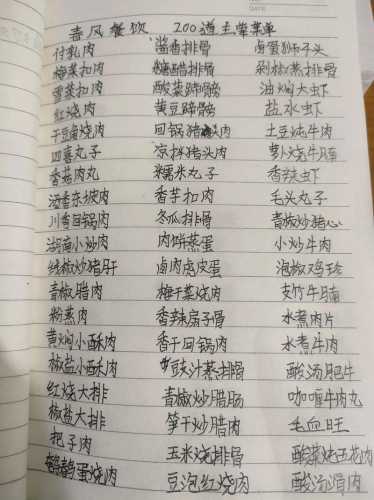 DATE
春风餐饮 200道主荤菜单
付乳肉 酱香排骨 卤蛋狮子头
梅菜扣肉 糖醋排骨 剁椒蒸排骨
雪菜扣肉 酸菜蹄髈 油焖大虾
红烧肉 黄豆蹄髈 盐水虾
干豆角烧肉 回锅猪头肉 土豆炖牛肉
四喜丸子 凉拌猪头肉 萝卜烧牛腩
香菇肉丸 糯米丸子 香辣虾
酒香东坡肉 香芋扣肉 毛头丸子
川香回锅肉 冬瓜排骨 青椒炒猪心
湖南小炒肉 肉饼蒸蛋 小炒牛肉
线椒炒猪肝 卤肉虎皮蛋 泡椒鸡珍
青椒腊肉 梅干菜烧肉 支竹牛腩
粉蒸肉 香辣扇子骨 水煮肉片
黄焖小酥肉 香干回锅肉 水煮牛肉
椒盐小酥肉 豉汁蒸排骨 酸汤肥牛
红烧大排 青椒炒腊肠 咖喱牛肉丸
椒盐大排 笋干炒腊肉 毛血旺
把子肉 玉米烧排骨 酸菜炖五花肉
鹌鹑蛋烧肉 豆泡红烧肉 酸汤滑肉